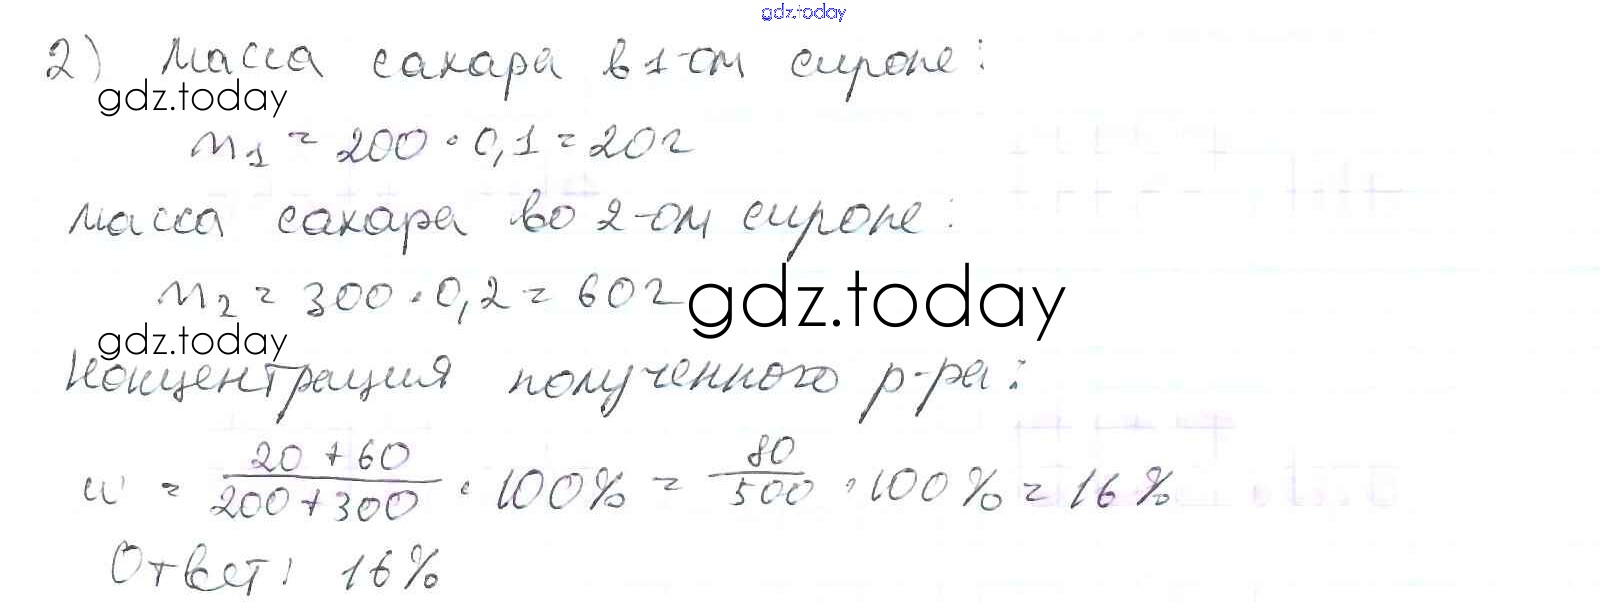 gdz.today
2) Масса сахара в 1-ом сиропе:
gdz.today
m₁ = 200 · 0,1 = 20 г
масса сахара во 2-ом сиропе:
m₂ = 300 · 0,2 = 60 г
gdz.today
gdz.today
Концентрация полученного р-ра:
w = (20 + 60)/(200 + 300) · 100% = 80/500 · 100% = 16%
Ответ: 16%